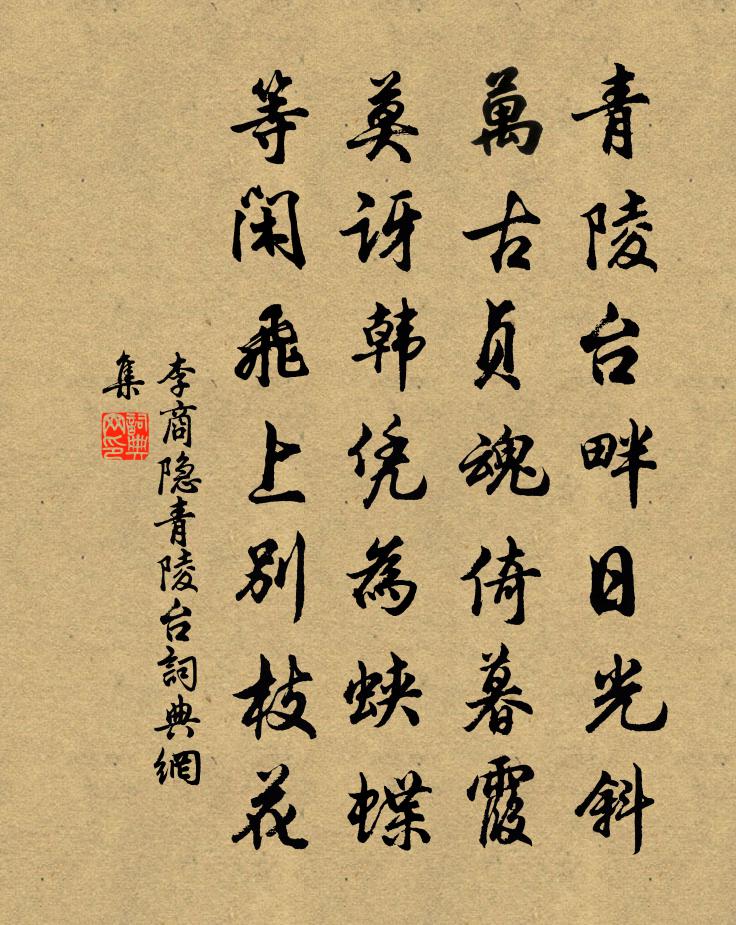 青陵台畔日光斜
萬古貞魂倚暮霞
莫訝韩凭為蛱蝶
等闲飛上别枝花
李商隐青陵台詞典網
集
詞典
网印